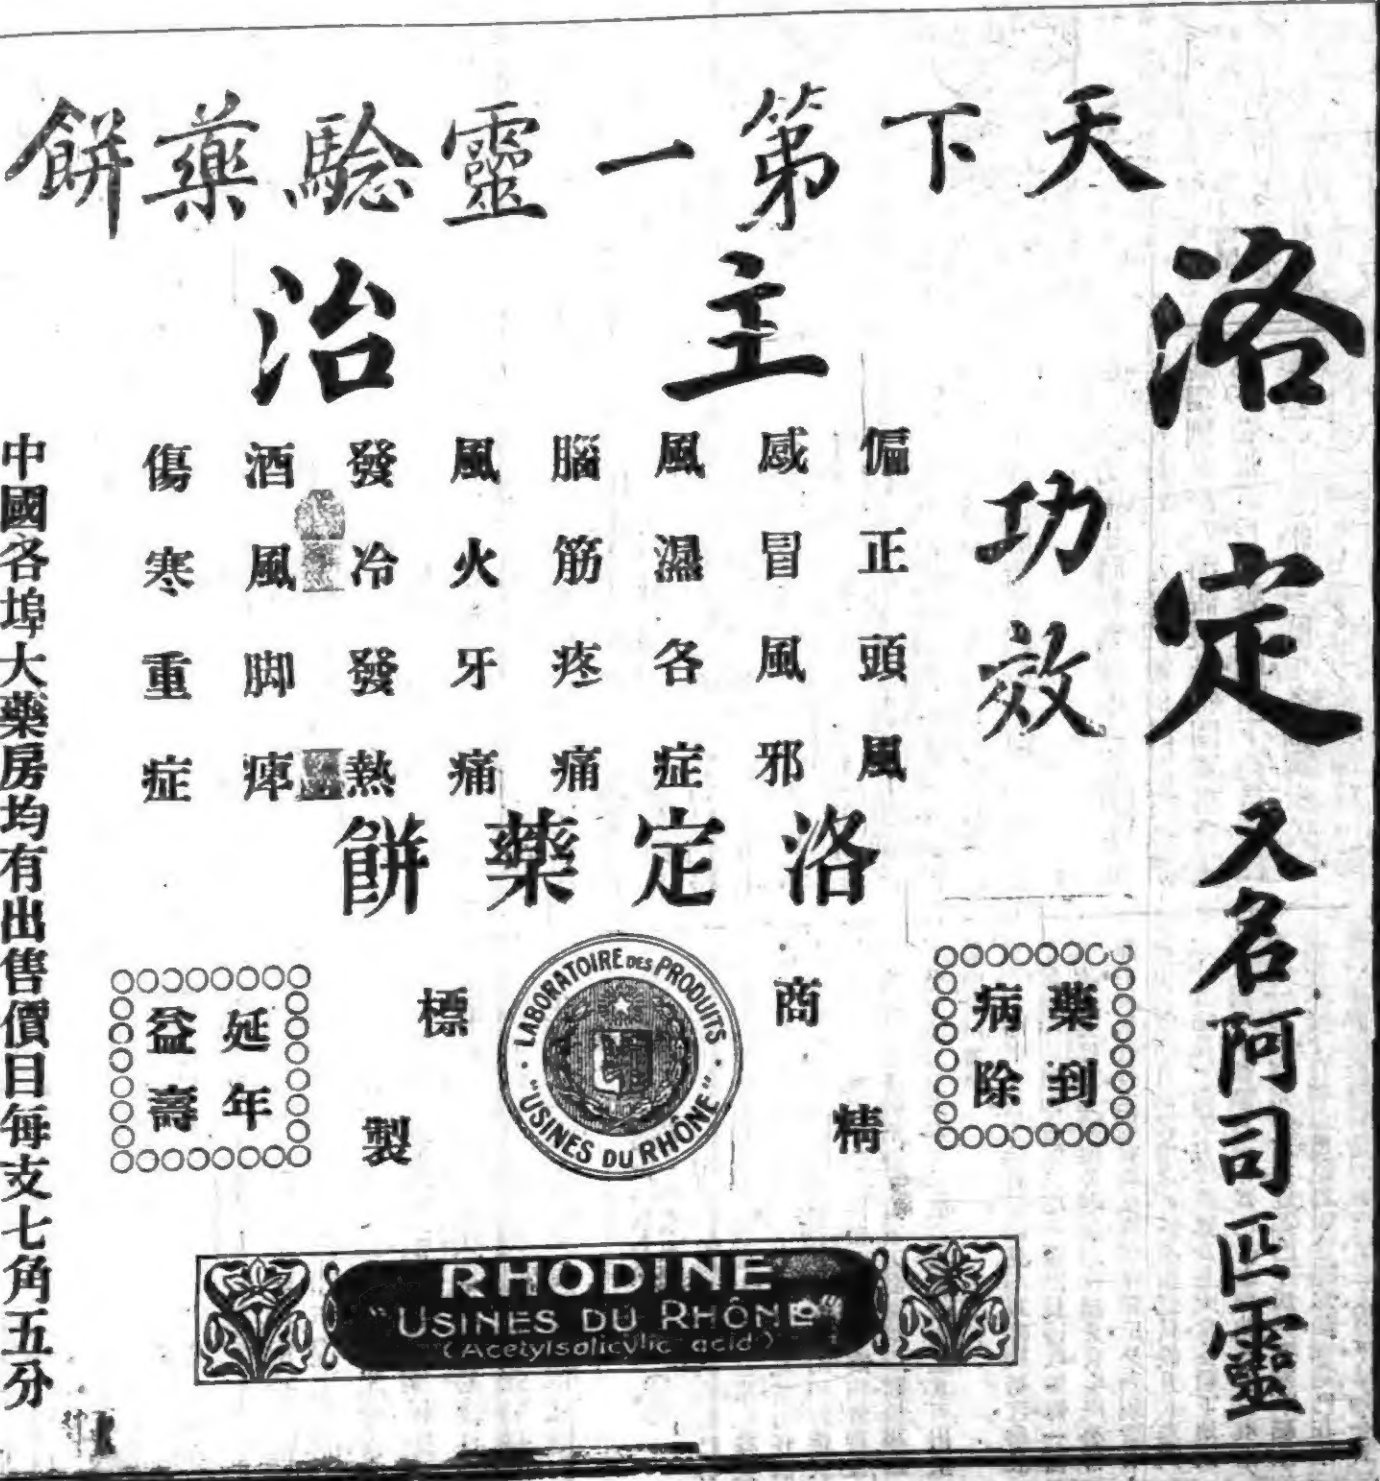 天下第一靈騐藥餅
洛定
又名阿司匹靈
功效
主治
偏正頭風
感冒風邪
風濕各症
腦筋疼痛
風火牙痛
發冷發熱
酒風脚痺
傷寒重症
洛定藥餅
藥到
病除
商標
精製
延年
益壽
LABORATOIRE DES PRODUITS
"USINES DU RHÔNE"
RHODINE
"USINES DU RHÔNE"
(Acetylsalicylic acid)
中國各埠大藥房均有出售價目每支七角五分